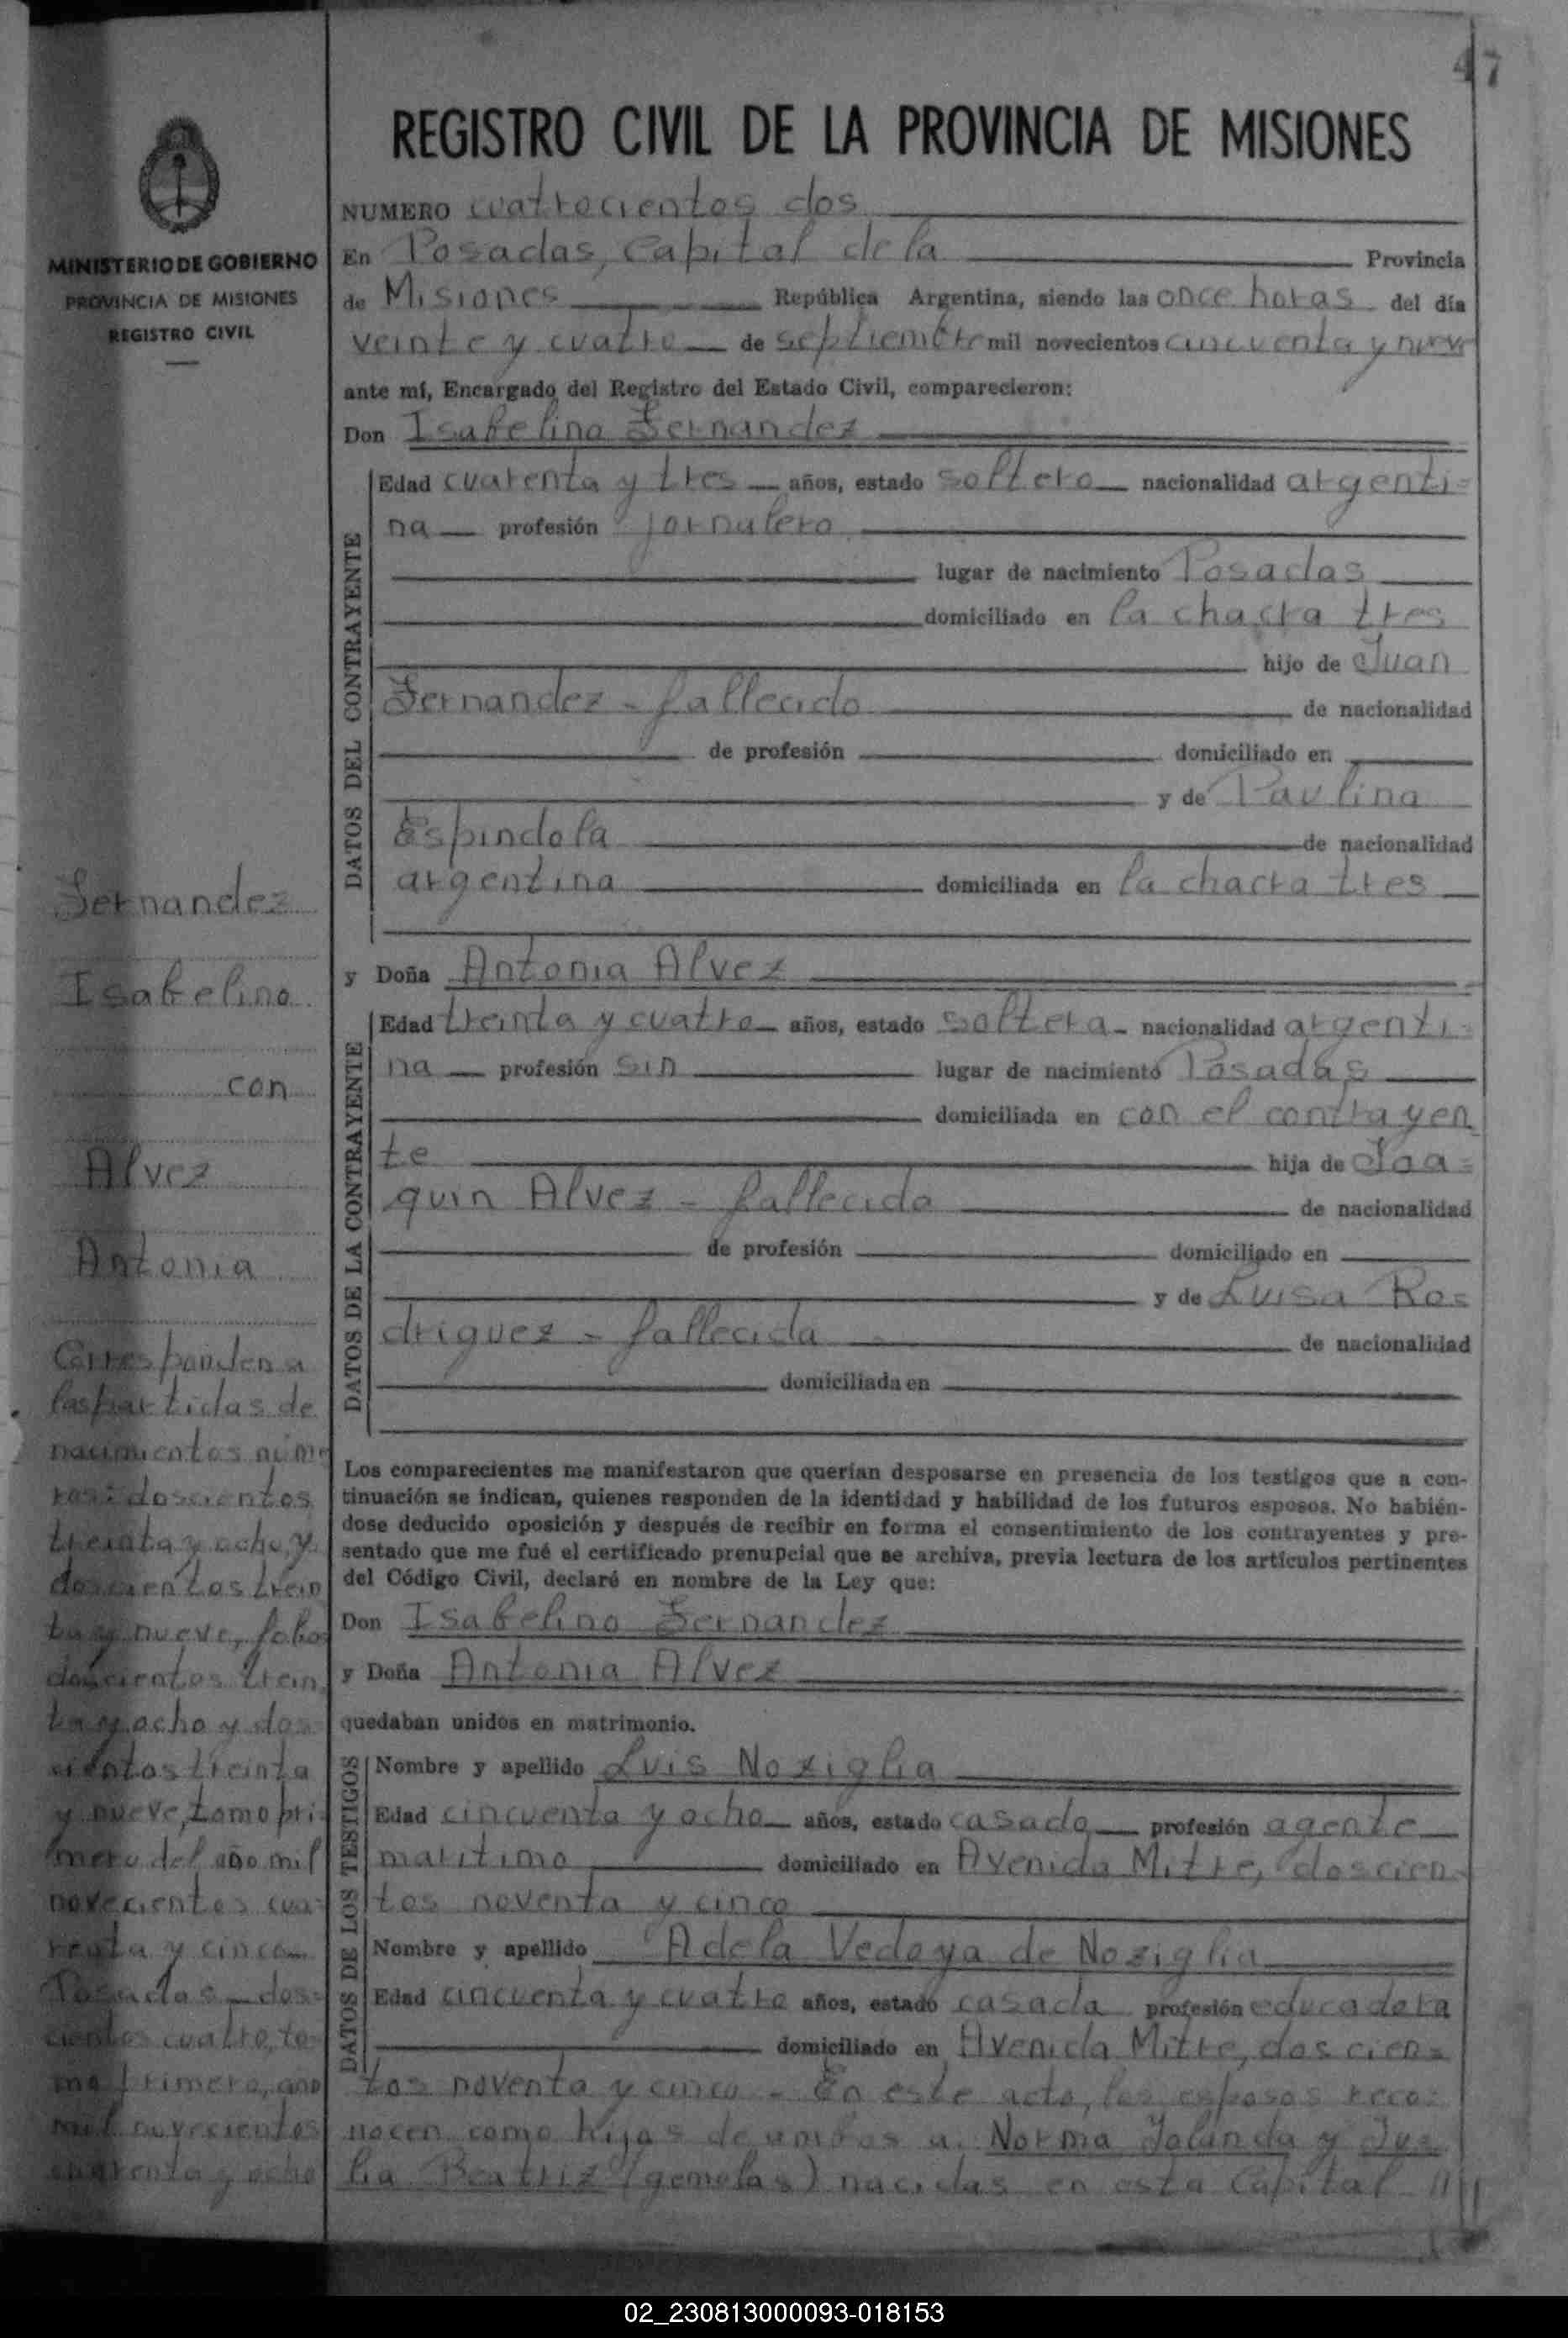 47
REGISTRO CIVIL DE LA PROVINCIA DE MISIONES
MINISTERIO DE GOBIERNO
PROVINCIA DE MISIONES
REGISTRO CIVIL
NUMERO cuatrocientos dos
En Posadas, Capital de la Provincia
de Misiones República Argentina, siendo las once horas del día
veinte y cuatro de septiembre mil novecientos cincuenta y nueve
ante mí, Encargado del Registro del Estado Civil, comparecieron:
Don Isabelino Fernandez
DATOS DEL CONTRAYENTE
Edad cuarenta y tres años, estado soltero nacionalidad argenti=
na profesión jornalero
lugar de nacimiento Posadas
domiciliado en la chacra tres
hijo de Juan
Fernandez - fallecido de nacionalidad
de profesión domiciliado en
y de Paulina
Espindola de nacionalidad
argentina domiciliada en la chacra tres
y Doña Antonia Alvez
DATOS DE LA CONTRAYENTE
Edad treinta y cuatro años, estado soltera nacionalidad argenti=
na profesión sin lugar de nacimiento Posadas
domiciliada en con el contrayen
te hija de Joa=
quin Alvez - fallecido de nacionalidad
de profesión domiciliado en
y de Luisa Ro=
driguez - fallecida de nacionalidad
domiciliada en
Los comparecientes me manifestaron que querían desposarse en presencia de los testigos que a con-
tinuación se indican, quienes responden de la identidad y habilidad de los futuros esposos. No habién-
dose deducido oposición y después de recibir en forma el consentimiento de los contrayentes y pre-
sentado que me fué el certificado prenupcial que se archiva, previa lectura de los artículos pertinentes
del Código Civil, declaré en nombre de la Ley que:
Don Isabelino Fernandez
y Doña Antonia Alvez
quedaban unidos en matrimonio.
DATOS DE LOS TESTIGOS
Nombre y apellido Luis Noziglia
Edad cincuenta y ocho años, estado casado profesión agente
maritimo domiciliado en Avenida Mitre, doscien
tos noventa y cinco
Nombre y apellido Adela Vedoya de Noziglia
Edad cincuenta y cuatro años, estado casada profesión educadora
domiciliado en Avenida Mitre, doscien=
tos noventa y cinco - En este acto, los esposos reco=
nocen como hijas de ambos a: Norma Yolanda y Ju=
lia Beatriz (gemelas) nacidas en esta Capital
Fernandez
Isabelino
con
Alvez
Antonia
Corresponden a
las partidas de
nacimientos núme
ros: doscientos
treinta y ocho, y
doscientos trein
ta y nueve, folios
doscientos trein
ta y ocho y dos
cientos treinta
y nueve, tomo pri
mero del año mil
novecientos cua
renta y cinco
Posadas - dos=
cientos cuatro, to
mo primero, año
mil novecientos
cuarenta y ocho
02_230813000093-018153